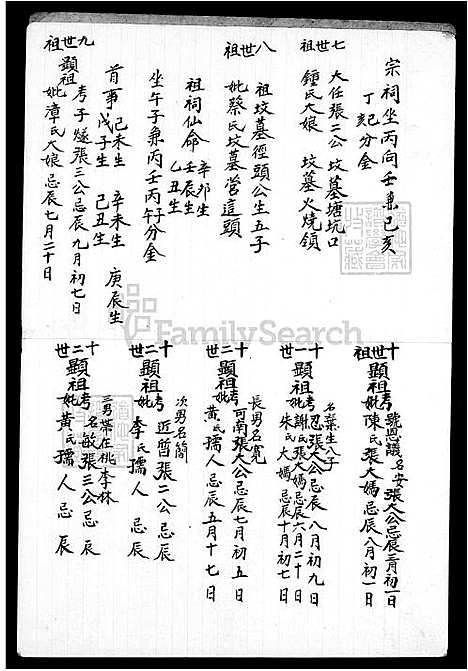 宗祠坐丙向壬兼巳亥
丁巳分金
七世祖
大任張二公 坟墓塘坑口
鍾氏大娘 坟墓火燒領
八世祖
祖坟墓徑頭公生五子
妣蔡氏坟墓营這頭
祖祠仙命 辛夘生
壬辰生
乙丑生
坐午子兼丙壬丙午子分金
首事 己未生 辛未生 庚辰生
戊子生 己丑生
九世祖
顯祖
考子燧張三公忌辰九月初七日
妣漳氏大娘忌辰七月二十日
十世祖
顯祖
考 號恩議 名安 張大公忌辰二月初一日
妣陳氏張大媽忌辰八月初一日
名葉生八子
十一世
顯祖
考忍張大公忌辰八月初九日
妣謝氏張大媽忌辰六月二十日
朱氏大媽忌辰十月初七日
長男名寬
十二世
顯祖
考可南張大公忌辰七月初五日
妣黄氏孺人忌辰五月十七日
次男名簡
十二世
顯祖
考近晢張二公忌辰
妣李氏孺人忌辰
三男常在桃李林
十二世
顯祖
考名敏張三公忌辰
妣黄氏孺人忌辰
FamilySearch